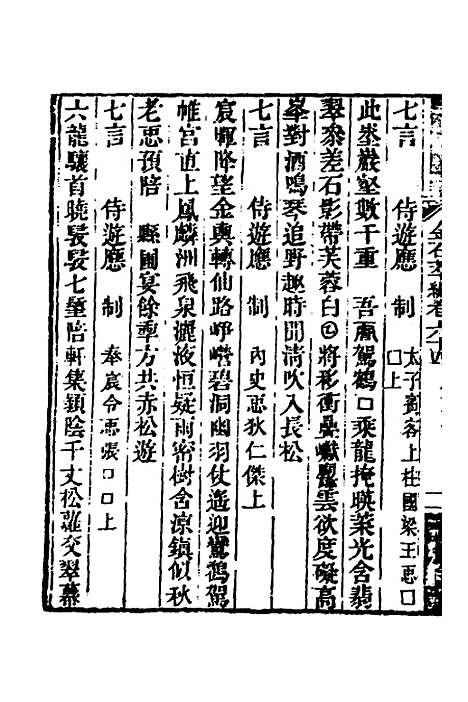 金石萃編卷六十四
七言　侍遊應　制　太子賓客上柱國梁王𢘑□□上
此埊巖壑數千重　吾𠺞駕鶴□乘龍掩暎葉光含翡
翠叅差石影帶芙蓉白𡆠將移衝疊巘玄雲欲度礙高
峯對酒鳴琴追野趣時聞清吹入長松
七言　侍遊應　制　內史𢘑狄仁傑上
宸暉降望金輿轉仙路崢嶸碧澗幽羽仗遙迎鸞鶴駕
帷宮直上鳳麟洲飛泉灑液恒疑雨密樹含涼鎮似秋
老𢘑預陪　縣圃宴餘秊方共赤松遊
七言　侍遊應　制　奉宸令𢘑張□□上
六龍驤首曉駸駸七𡔈陪軒集潁陰千丈松蘿交翠幕